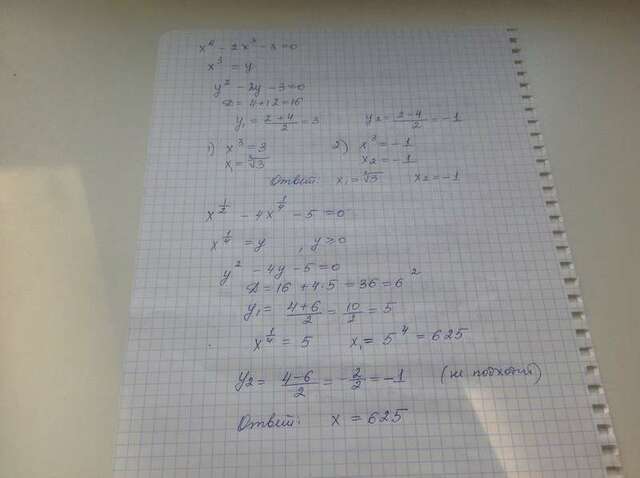 x⁴ - 2x³ - 3 = 0
x³ = y
y² - 2y - 3 = 0
D = 4 + 12 = 16
y₁ = (2+4)/2 = 3   y₂ = (2-4)/2 = -1
1) x³ = 3   2) x³ = -1
x₁ = ∛3   x₂ = -1
Ответ: x₁ = ∛3   x₂ = -1
x^(1/2) - 4x^(1/4) - 5 = 0
x^(1/4) = y , y ≥ 0
y² - 4y - 5 = 0
D = 16 + 4·5 = 36 = 6²
y₁ = (4+6)/2 = 10/2 = 5
x^(1/4) = 5   x₁ = 5⁴ = 625
y₂ = (4-6)/2 = -2/2 = -1   (не подходит)
Ответ: x = 625